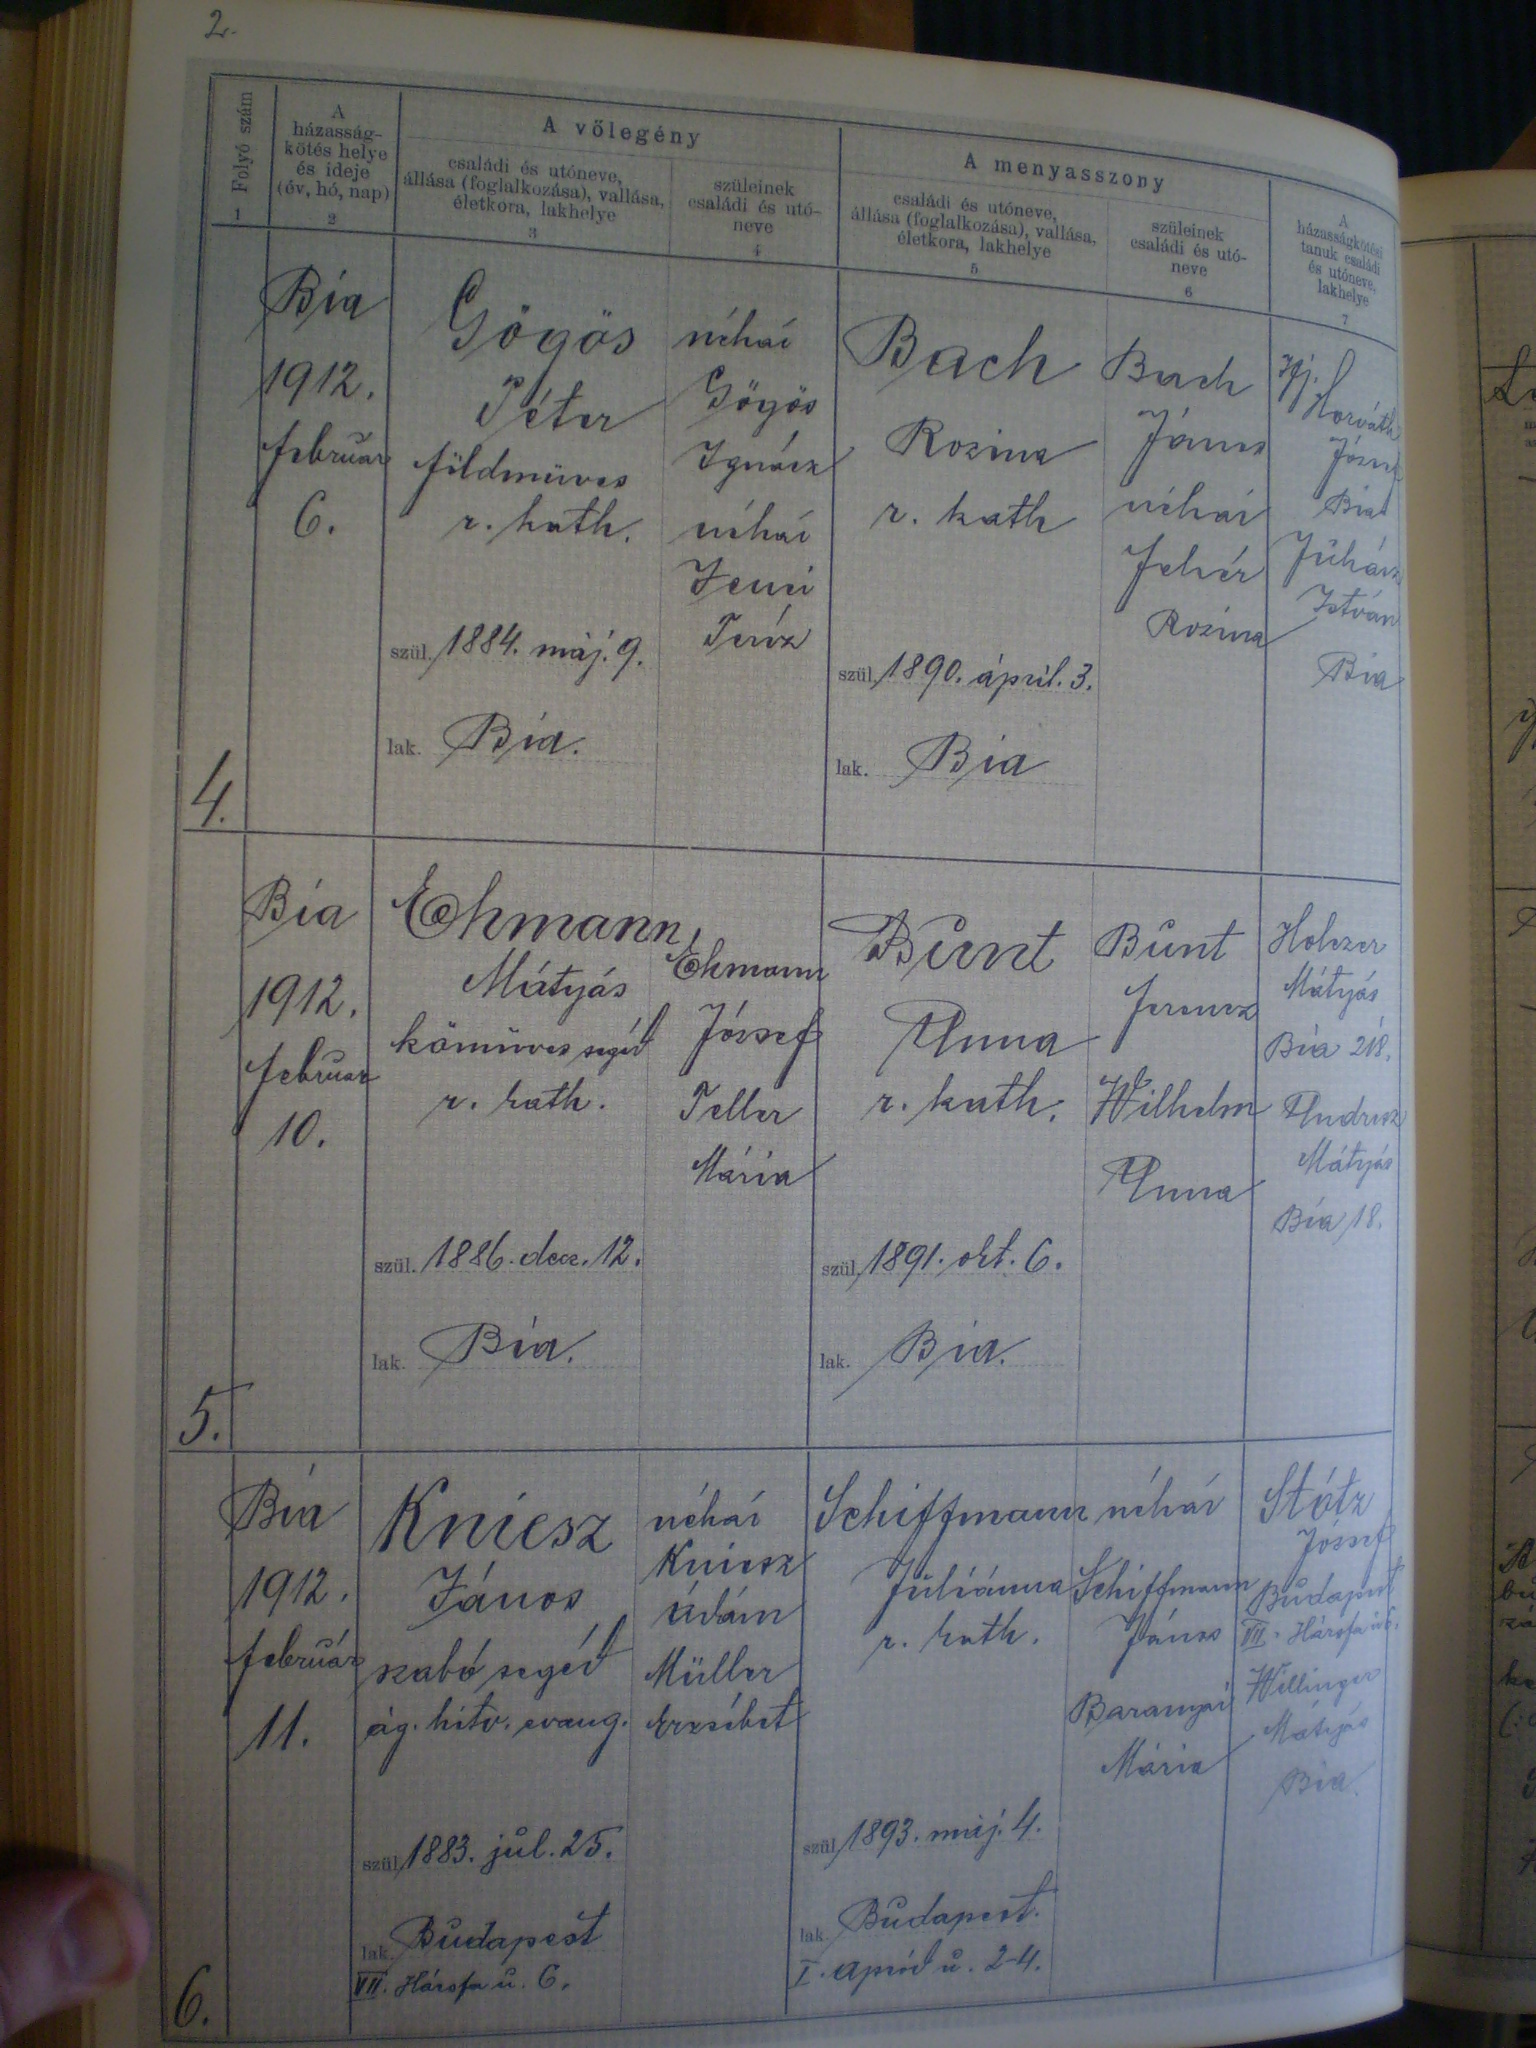 2.
Folyó szám
1
A
házasság-
kötés helye
és ideje
(év, hó, nap)
2
A vőlegény
családi és utóneve,
állása (foglalkozása), vallása,
életkora, lakhelye
3
szüleinek
családi és utó-
neve
4
A menyasszony
családi és utóneve,
állása (foglalkozása), vallása,
életkora, lakhelye
5
szüleinek
családi és utó-
neve
6
A
házasságkötési
tanuk családi
és utóneve,
lakhelye
7
4.
Bia
1912.
február
6.
Gögös
Péter
földműves
r. kath.
szül. 1884. máj. 9.
lak. Bia.
néhai
Gögös
Ignácz
néhai
Jenei
Teréz
Bach
Rozina
r. kath
szül. 1890. ápril. 3.
lak. Bia
Bach
János
néhai
Fehér
Rozina
Ifj.
Horváth
József
Bia
Juhász
István
Bia
5.
Bia
1912.
február
10.
Ehmann
Mátyás
kőműves segéd
r. kath.
szül. 1886. dec. 12.
lak. Bia.
Ehmann
József
Teller
Mária
Bunt
Anna
r. kath.
szül. 1891. okt. 6.
lak. Bia.
Bunt
Ferencz
Wilhelm
Anna
Holczer
Mátyás
Bia 218.
Andresz
Mátyás
Bia 18.
6.
Bia
1912.
február
11.
Kniesz
János
szabó segéd
ág. hitv. evang.
szül. 1883. júl. 25.
lak. Budapest
VII. Hársfa u. 6.
néhai
Kniesz
Ádám
Müller
Erzsébet
Schiffmann
Juliánna
r. kath.
szül. 1893. máj. 4.
lak. Budapest.
I. Apród u. 2-4.
néhai
Schiffmann
János
Baranyai
Mária
Stótz
József
Budapest
VII. Hársfa u 6.
Willinger
Mátyás
Bia.